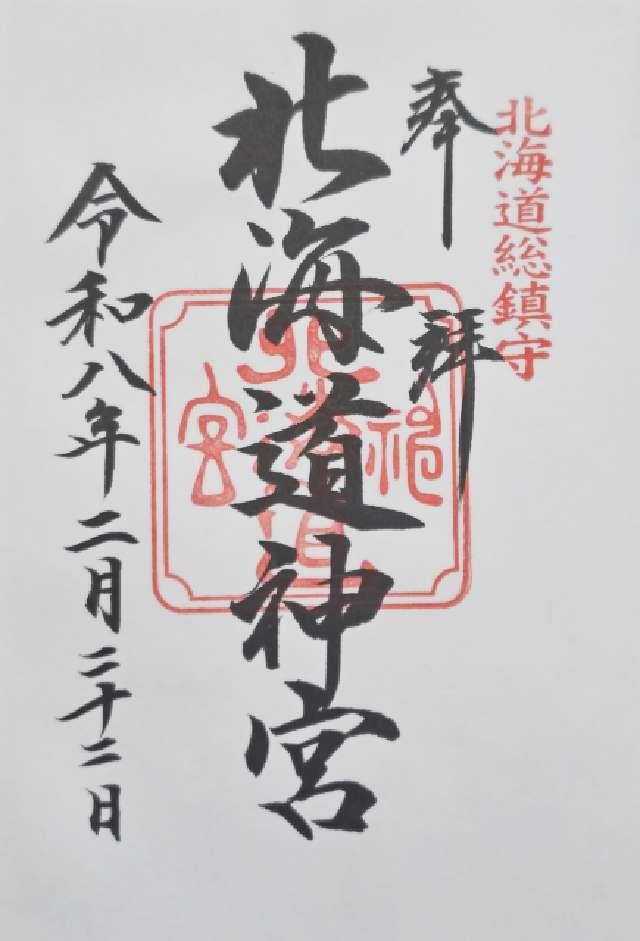 北海道総鎮守
奉拝
北海道神宮
令和八年二月二十二日